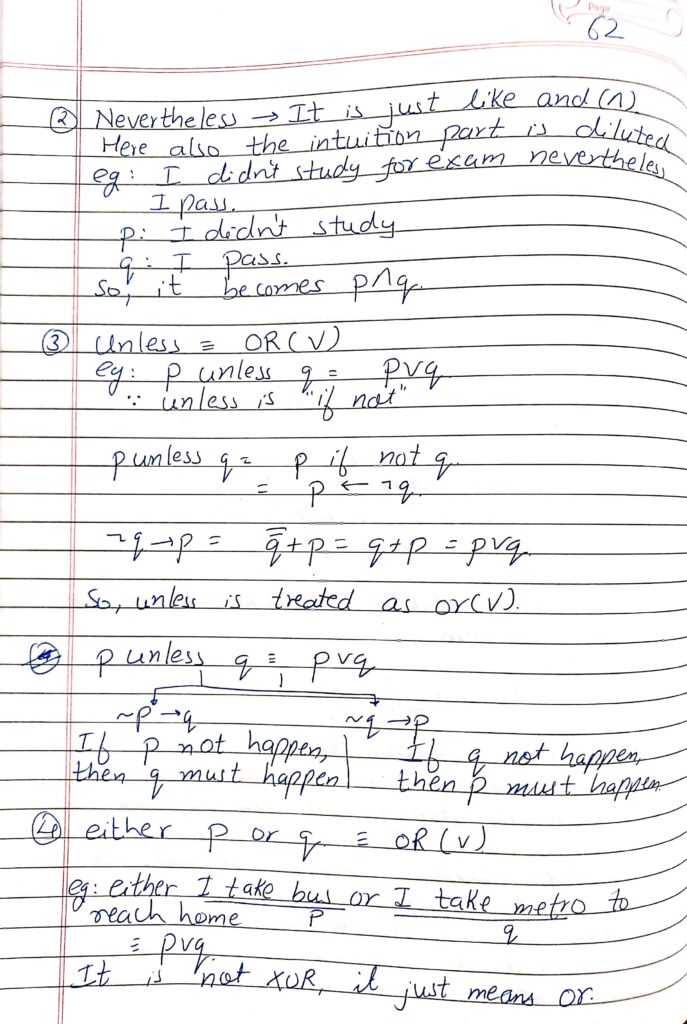 Page
62
② Nevertheless → It is just like and (∧)
Here also the intuition part is diluted
eg: I didn't study for exam nevertheless
I pass.
p: I didn't study
q: I pass.
So, it becomes p∧q.
③ Unless ≡ OR (∨)
eg: p unless q = p∨q
∵ unless is "if not"
p unless q = p if not q.
= p ← ¬q.
¬q → p = q̿ + p = q + p = p∨q.
So, unless is treated as or(∨).
p unless q ≡ p∨q
~p → q ~q → p
If p not happen, If q not happen,
then q must happen then p must happen.
④ either p or q ≡ OR (∨)
eg: either I take bus or I take metro to
reach home p q
≡ p∨q.
It is not XOR, it just means or.